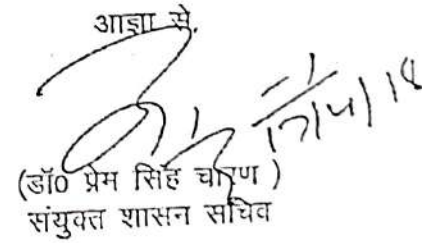 आज्ञा से,
(डॉ0 प्रेम सिंह चारण )
संयुक्त शासन सचिव